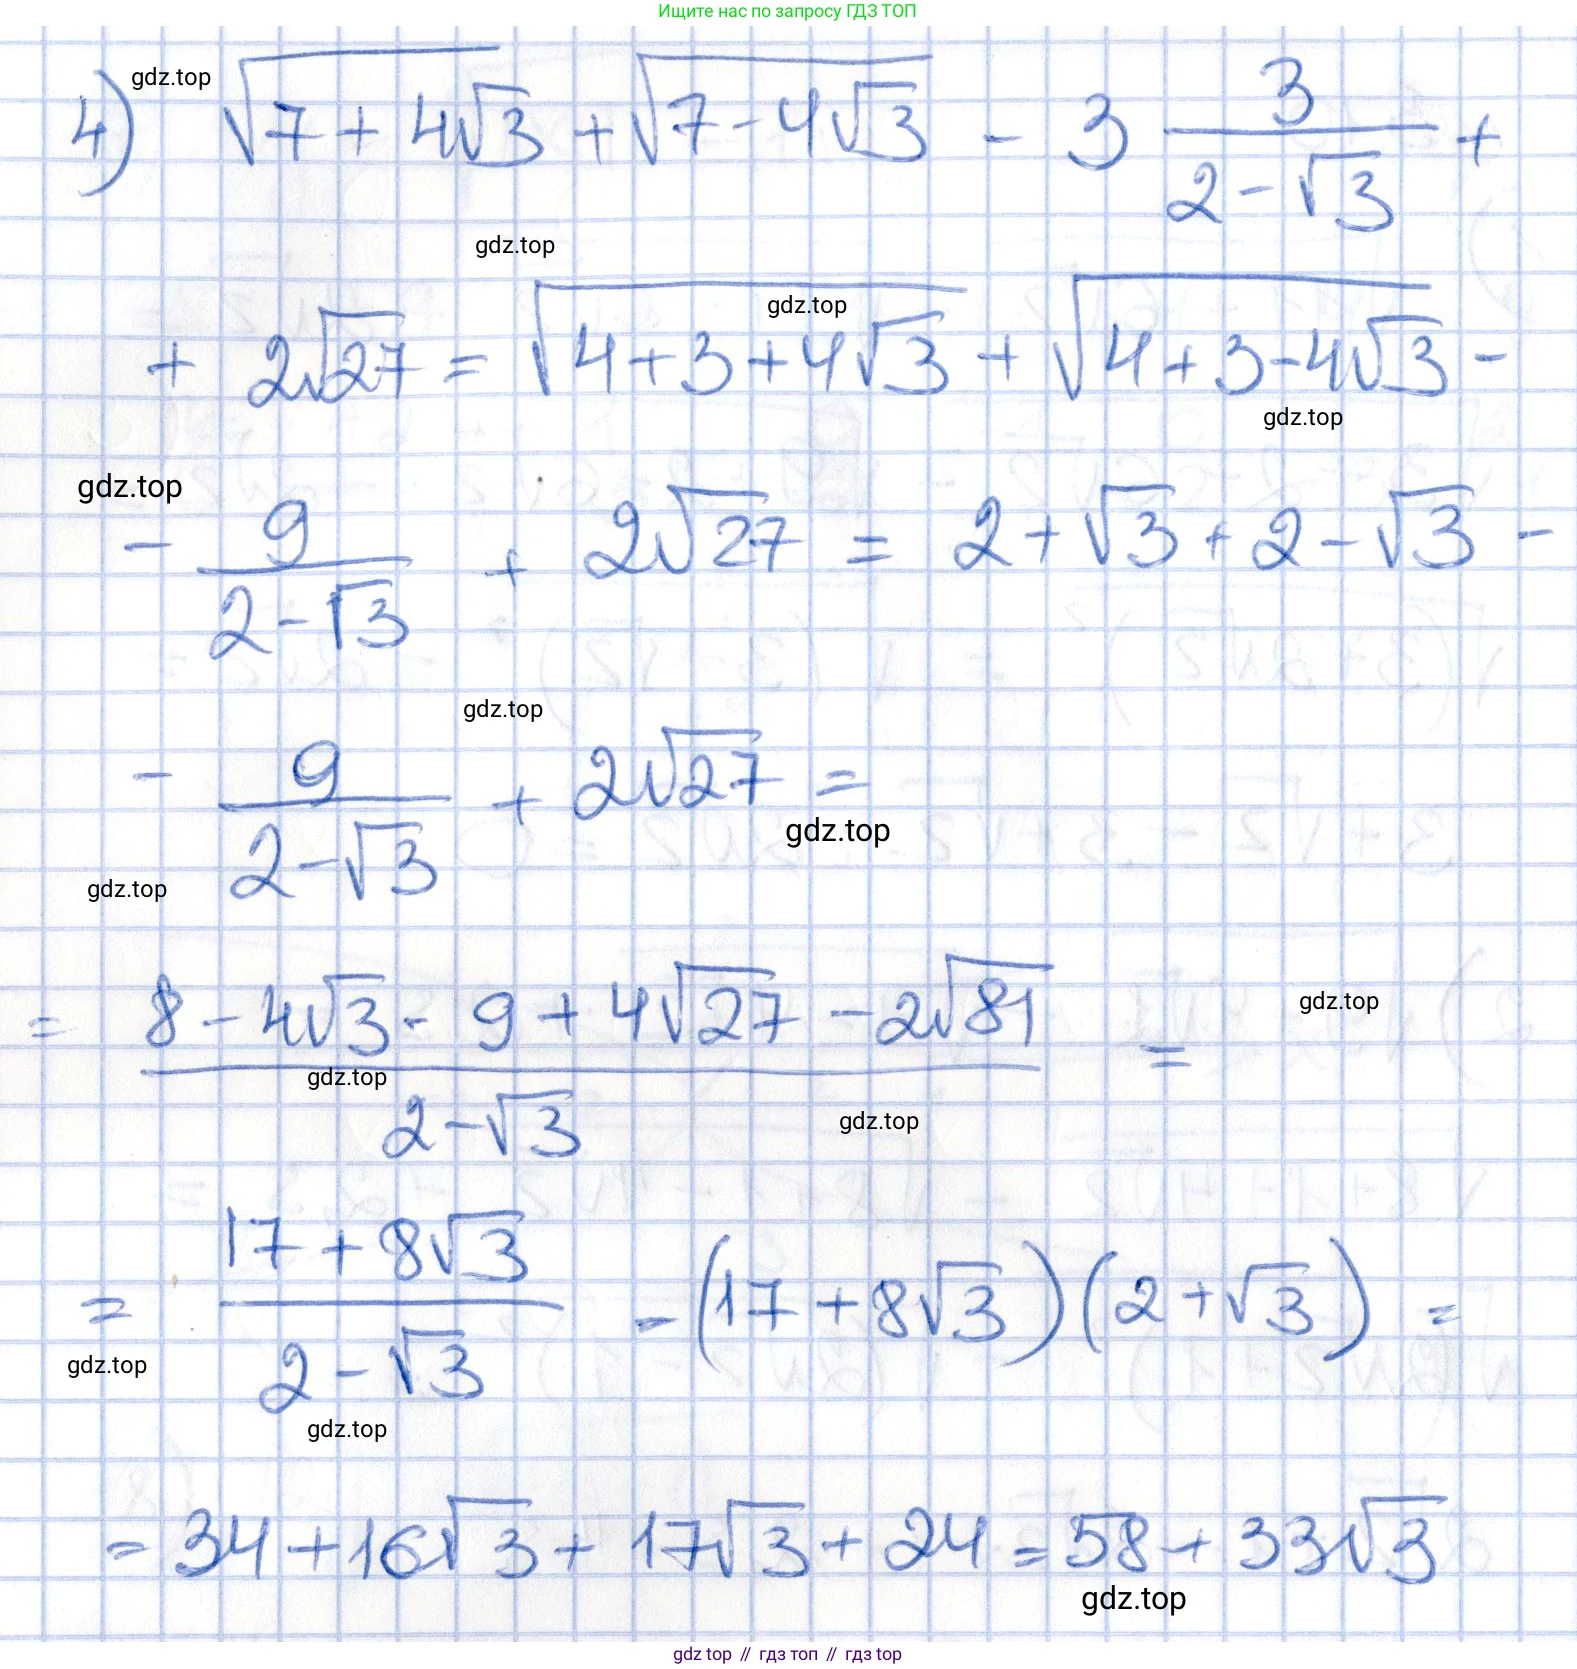 Ищите нас по запросу ГДЗ ТОП
gdz.top
4) √(7 + 4√3) + √(7 - 4√3) - 3 3/(2 - √3) +
gdz.top
gdz.top
+ 2√27 = √(4 + 3 + 4√3) + √(4 + 3 - 4√3) -
gdz.top
gdz.top
- 9/(2 - √3) + 2√27 = 2 + √3 + 2 - √3 -
gdz.top
- 9/(2 - √3) + 2√27 =
gdz.top
gdz.top
= (8 - 4√3 - 9 + 4√27 - 2√81)/(2 - √3) =
gdz.top
gdz.top
gdz.top
= (17 + 8√3)/(2 - √3) - (17 + 8√3)(2 + √3) =
gdz.top
gdz.top
= 34 + 16√3 + 17√3 + 24 = 58 + 33√3
gdz.top
gdz top // гдз топ // гдз top